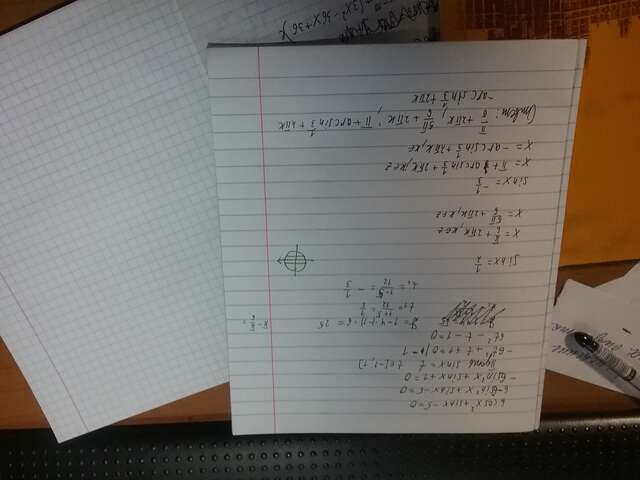 6cos²x + sinx - 5 = 0
6 - 6sin²x + sinx - 5 = 0
- 6sin²x + sinx + 1 = 0
Пусть sinx = t, t∈[-1;1]
- 6t² + t + 1 = 0 | · -1
6t² - t - 1 = 0
D = 1 - 4·(-1)·6 = 25
t₁ = 1+5/12 = 1/2
t₂ = 1-5/12 = - 1/3
sinx = 1/2
x = π/6 + 2πk, k∈z
x = 5π/6 + 2πk, k∈z
sinx = - 1/3
x = π + arcsin 1/3 + 2πk, k∈z
x = - arcsin 1/3 + 2πk, k∈z
Ответ: π/6 + 2πk ; 5π/6 + 2πk ; π + arcsin 1/3 + 2πk ;
- arcsin 1/3 + 2πk